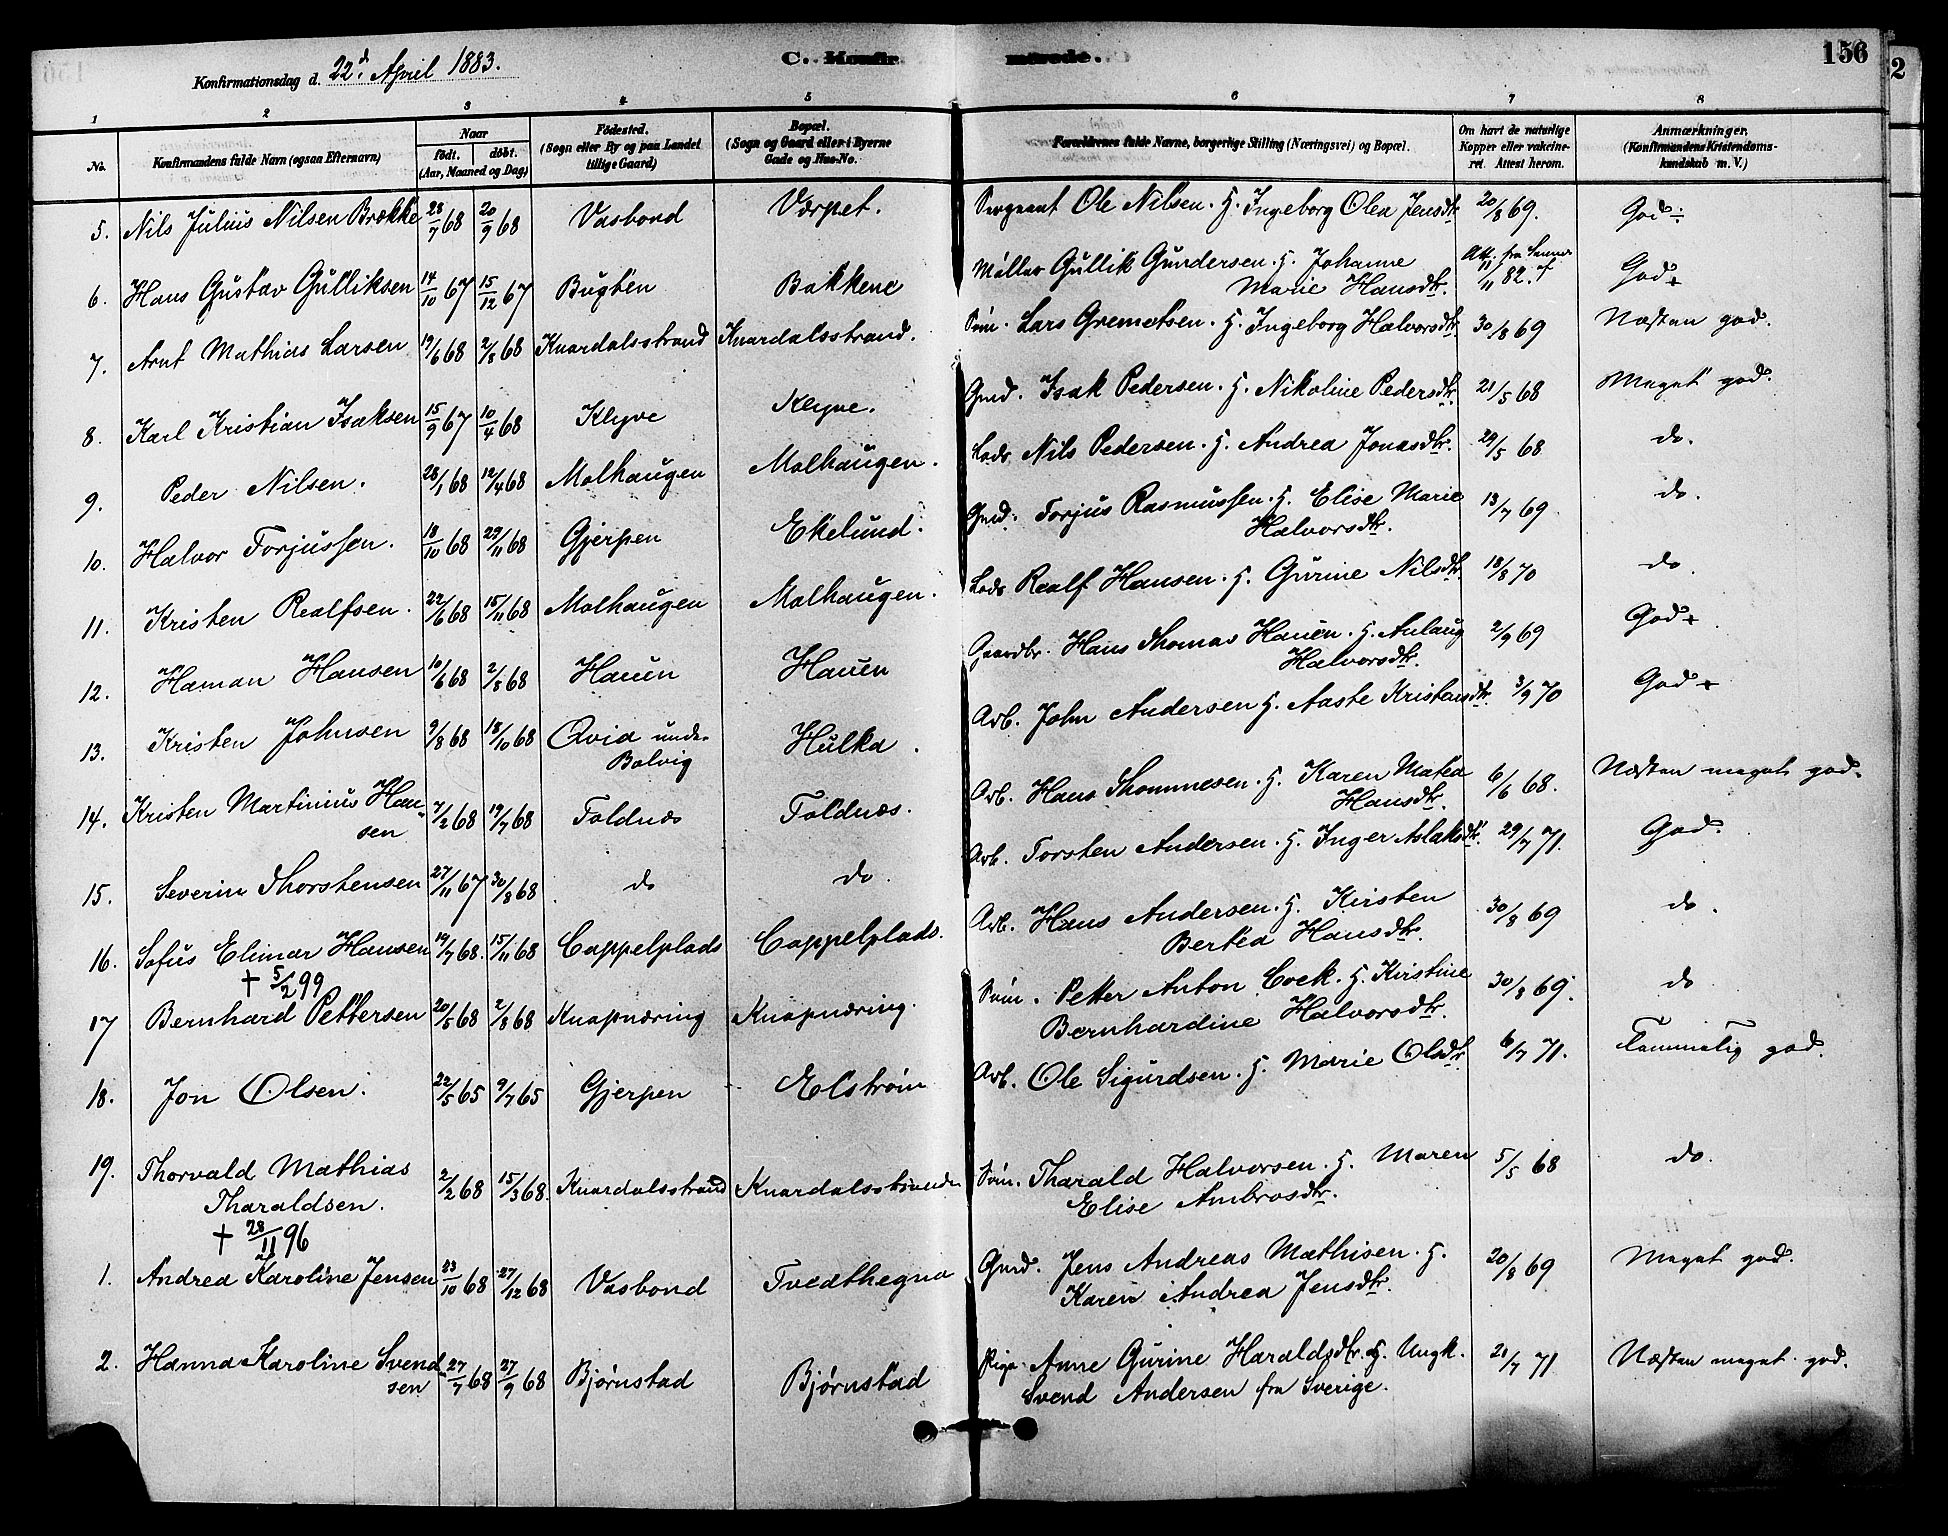 156
2
Konfirmationsdag d. 22d April 1883.
C. Konfirmerede.
1 2 3 4 5 6 7 8
No.
Konfirmandens fulde Navn (ogsaa Efternavn)
Naar
født. døbt.
(Aar, Maaned og Dag)
Fødested.
(Sogn eller By og paa Landet
tillige Gaard)
Bopæl.
(Sogn og Gaard eller i Byerne
Gade og Hus-No.
Forældrenes fulde Navne, borgerlige Stilling (Næringsvei) og Bopæl.
Om havt de naturlige
Kopper eller vakcine-
ret. Attest herom.
Anmærkninger.
(Konfirmandens Kristendoms-
kundskab m. V.)
5. Nils Julius Nilsen Brække 28/7 68 20/9 68 Vasbond Værpet. Sergeant Ole Nilsen. H. Ingeborg Olea Jensdtr 20/8 69. God÷
6. Hans Gustav Gulliksen 14/10 67 15/12 67 Bugten Bakkene Møller Gullik Gundersen. H. Johanne
Marie Hansdtr. 11/11 82. God+
7. Arnt Mathias Larsen 19/6 68 2/8 68 Knardalsstrand Knardalsstrand. Søm. Lars Gremetsen. H. Ingeborg Halvorsdtr. 30/8 69 Næsten god.
8. Karl Kristian Isaksen 15/9 67 10/4 68 Klyve Klyve. Gmd. Isak Pedersen. H. Nikoline Pedersdtr. 21/5 68 Meget god.
9. Peder Nilsen. 28/1 68 12/4 68 Molhaugen Molhaugen. Lods Nils Pedersen. H. Andrea Jonasdtr. 29/5 68 do.
10. Halvor Torjussen. 18/10 68 29/11 68 Gjerpen Ekelund. Gmd. Torjus Rasmussen. H. Elise Marie
Halvorsdtr. 13/7 69 do.
11. Kristen Realfsen. 22/6 68 15/11 68 Molhaugen Molhaugen. Lods Realf Hansen. H. Gurine Nilsdtr. 18/8 70 do.
12. Haman Hansen 10/6 68 2/8 68 Hauen Hauen Gaardbr. Hans Thomas Hauen. H. Anlaug
Halvorsdtr. 2/9 69 God+
13. Kristen Johnsen 9/8 68 18/10 68 Qvia under
Bolvig Hulka. Arb. John Andersen H. Aaste Kristensdtr. 3/9 70 God+
14. Kristen Martinius Han-
sen 7/2 68 19/7 68 Foldnæs Foldnæs. Arb. Hans Thommesen. H. Karen Matea
Hansdtr. 6/6 68. Næsten meget god.
15. Severin Thorstensen 27/11 67 30/8 68 do do. Arb. Torsten Andersen. H. Inger Aslaksdtr. 29/7 71. God.
16. Sofus Elimar Hansen 19/7 68. 15/11 68 Cappelplads Cappelplads. Arb. Hans Andersen. H. Kirsten
Bertea Hansdtr. 30/8 69 do.
† 5/2 99
17 Bernhard Pettersen 20/5 68 2/8 68 Knapnæring Knapnæring. Søm. Petter Anton Cock. H. Kirstine
Bernhardine Halvorsdtr. 30/8 69. do
18. Jon Olsen. 22/5 65 9/7 65 Gjerpen Elstrøm Arb. Ole Sigurdsen. H. Marie Olsdtr 6/7 71. Temmelig god.
19. Thorvald Mathias
Tharaldsen. 2/2 68 15/3 68 Knardalsstrand Knardalsstranden Søm. Tharald Halvorsen. H. Maren
Elise Ambrosdtr. 5/5 68 do.
† 28/11 96
1. Andrea Karoline Jensen 23/10 68 27/12 68 Vasbond Tvedthegna Gmd. Jens Andreas Mathisen. H.
Karen Andrea Jensdtr. 20/8 69 Meget god.
2. Hanna Karoline Svend-
sen 27/7 68 27/9 68 Bjørnstad Bjørnstad Pige. Anne Gurine Haraldsdtr. og Ungk.
Svend Andersen fra Sverige. 21/7 71 Næsten meget god.